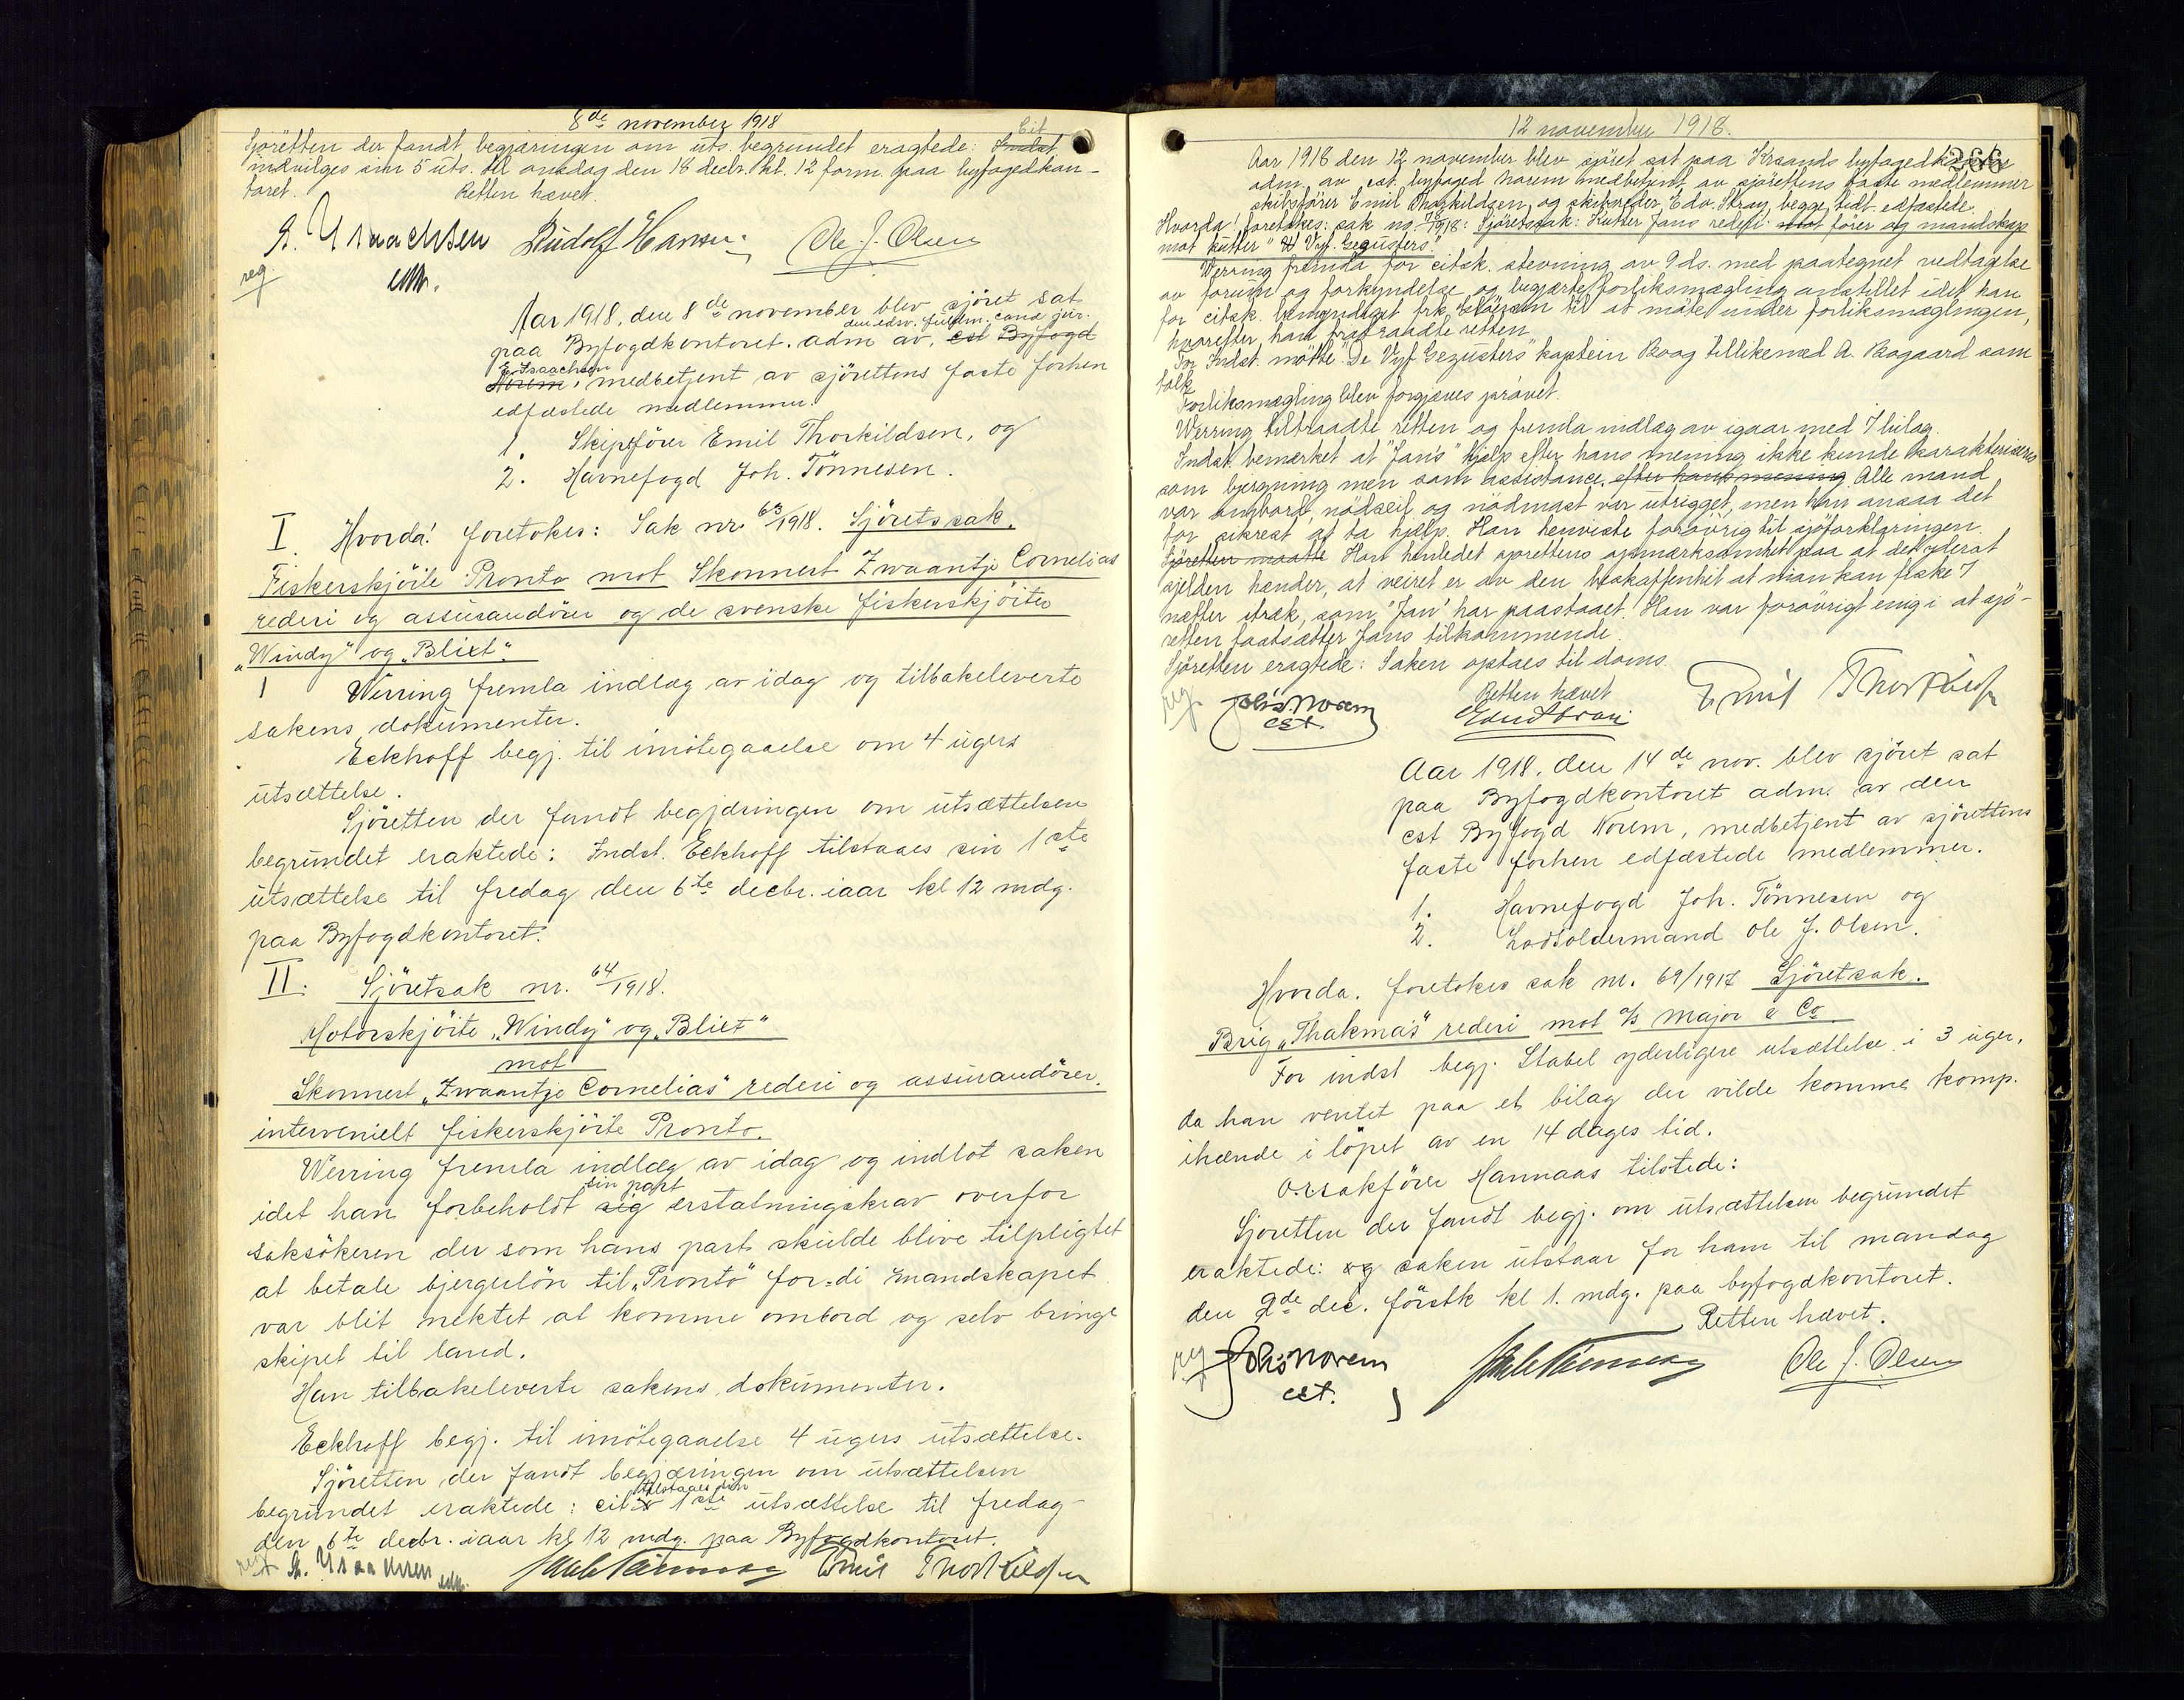 8de november 1918
Sjöretten der fandt begjæringen om uts. begrundet eragtede: Indst Cit
indvilges sin 5 uts. til onsdag den 18 decbr. kl. 12 form. paa byfogedkon-
toret. Retten hævet.
E. Isaachsen Rudolf Hansen Ole J. Olsen
reg edsv.
Aar 1918, den 8de november blev sjöret sat
paa Byfogdkontoret adm av. cst Byfogd den edsv. fuldm. cand jur.
Norem E. Isaachsen, medbetjent av sjörettens faste forhen
edfæstede medlemmer.
1. Skipsförer Emil Thorkildsen, og
2. Havnefogd Joh. Tönnesen.
I. Hvorda! foretokes: Sak nr 63/1918. Sjöretssak.
Fiskerskjöite Pronto mot Skonnert Zwaantje Cornelias
rederi og assurandörer og de svenske fiskerskjöiter
"Windy" og "Blixt."
1 Werring fremla indlæg av idag og tilbakeleverte
sakens dokumenter.
Eckhoff begj. til imötegaaelse om 4 ugers
utsættelse.
Sjöretten der fandt begjæringen om utsættelsen
begrundet eraktede: Indst. Eckhoff tilstaaes sin 1ste
utsættelse til fredag den 6te decbr. iaar kl 12 mdg.
paa Byfogdkontoret.
II. Sjöretsak nr. 64/1918.
Motorskjöite "Windy" og "Blixt"
mot
Skonnert "Zwaantje Cornelias" rederi og assurandörer.
intervenielt fiskerskjöite Pronto.
Werring fremla indlæg av idag og indlot saken
idet han forbeholdt sig sin part erstatningskrav overfor
saksökeren der som hans part skulde blive tilpligtet
at betale bjergelön til "Pronto" for-di mandskapet
var blit nektet at komme ombord og selv bringe
skipet til land.
Han tilbakeleverte sakens dokumenter.
Eckhoff begj. til imötegaaelse 4 ugers utsættelse.
Sjöretten der fandt begjæringen om utsættelsen
begrundet eraktede: cit. tilstaaes sin 1ste utsættelse til fredag
den 6te decbr. iaar kl 12 mdg. paa Byfogdkontoret.
reg E. Isaachsen edsv. Joh Tönnesen Emil Thorkildsen
12 november 1918.
366
Aar 1918 den 12 november blev sjöret sat paa Krsands byfogedkontor
adm. av cst. byfoged Norem medbetjent av sjörettens faste medlemmer
skibsförer Emil Thorkildsen og skibsreder Edv. Stray, begge tidl. edfæstede
Hvorda! foretokes: sak no. /1918: Sjöretssak: Kutter Jans rederi mot förer og mandskap
mot kutter "d Vyf. Gezusters."
Werring fremla for citsk. stevning av 9 ds. med paategnet vedtagelse
av forum og forkyndelse og begjærte forliksmægling anstillet idet han
for citsk. bemyndiget frk. til at möte under forliksmæglingen,
hvorefter han fratraadte retten
For Indst. mötte "De Vyf Gezusters" kaptein Boog tillikemed A. Bogaard som
tolk
Forliksmægling blev forgjæves prövet.
Werring tiltraadte retten og fremla indlæg av igaar med 7 bilag.
Indst. bemærket at "Jans" hjælp efter hans mening ikke kunde karakteriseres
som bjergning men som assistance. efter hans mening Alle mand
var ombord, nödseil og nödmast var utrigget, men han ansaa det
for sikrest at ta hjælp. Han henviste forövrig til sjöforklaringen.
Sjöretten maatte Han henledet sjörettens opmærksomhet paa at det yderst
sjelden hænder, at veiret er av den beskaffenhet at man kan fiske 7
nætter stræk, som "Jan" har paastaaet. Han var forövrigt enig i at sjö-
retten fastsætter Jans tilkommende.
Sjöretten eragtede: Saken optaes til doms.
Retten hævet
reg. Johs. Norem cst. Edv Stray Emil Thorkildsen
Aar 1918. den 14de nov. blev sjöret sat
paa Byfogdkontoret adm. av den
cst Byfogd Norem, medbetjent av sjörettens
faste forhen edfæstede medlemmer.
1. Havnefogd Joh. Tönnesen og
2. Lodsoldermand Ole J. Olsen.
Hvorda. foretokes sak nr. 69/1917 Sjöretsak.
Brig "Thakmas" rederi mot A/S Major & Co
For indst begj. Stabel yderligere utsættelse i 3 uger,
da han ventet paa et bilag der vilde komme komp.
ihænde i löpet av en 14 dages tid.
O.rsakförer Hannaas tilstede:
Sjoretten der fandt begj. om utsættelsen begrundet
eraktede: og saken utstaar for ham til mandag
den 2de dec. förstk kl 1. mdg. paa byfogdkontoret.
Retten hævet.
reg Johs Norem cst. Joh Tönnesen Ole J. Olsen